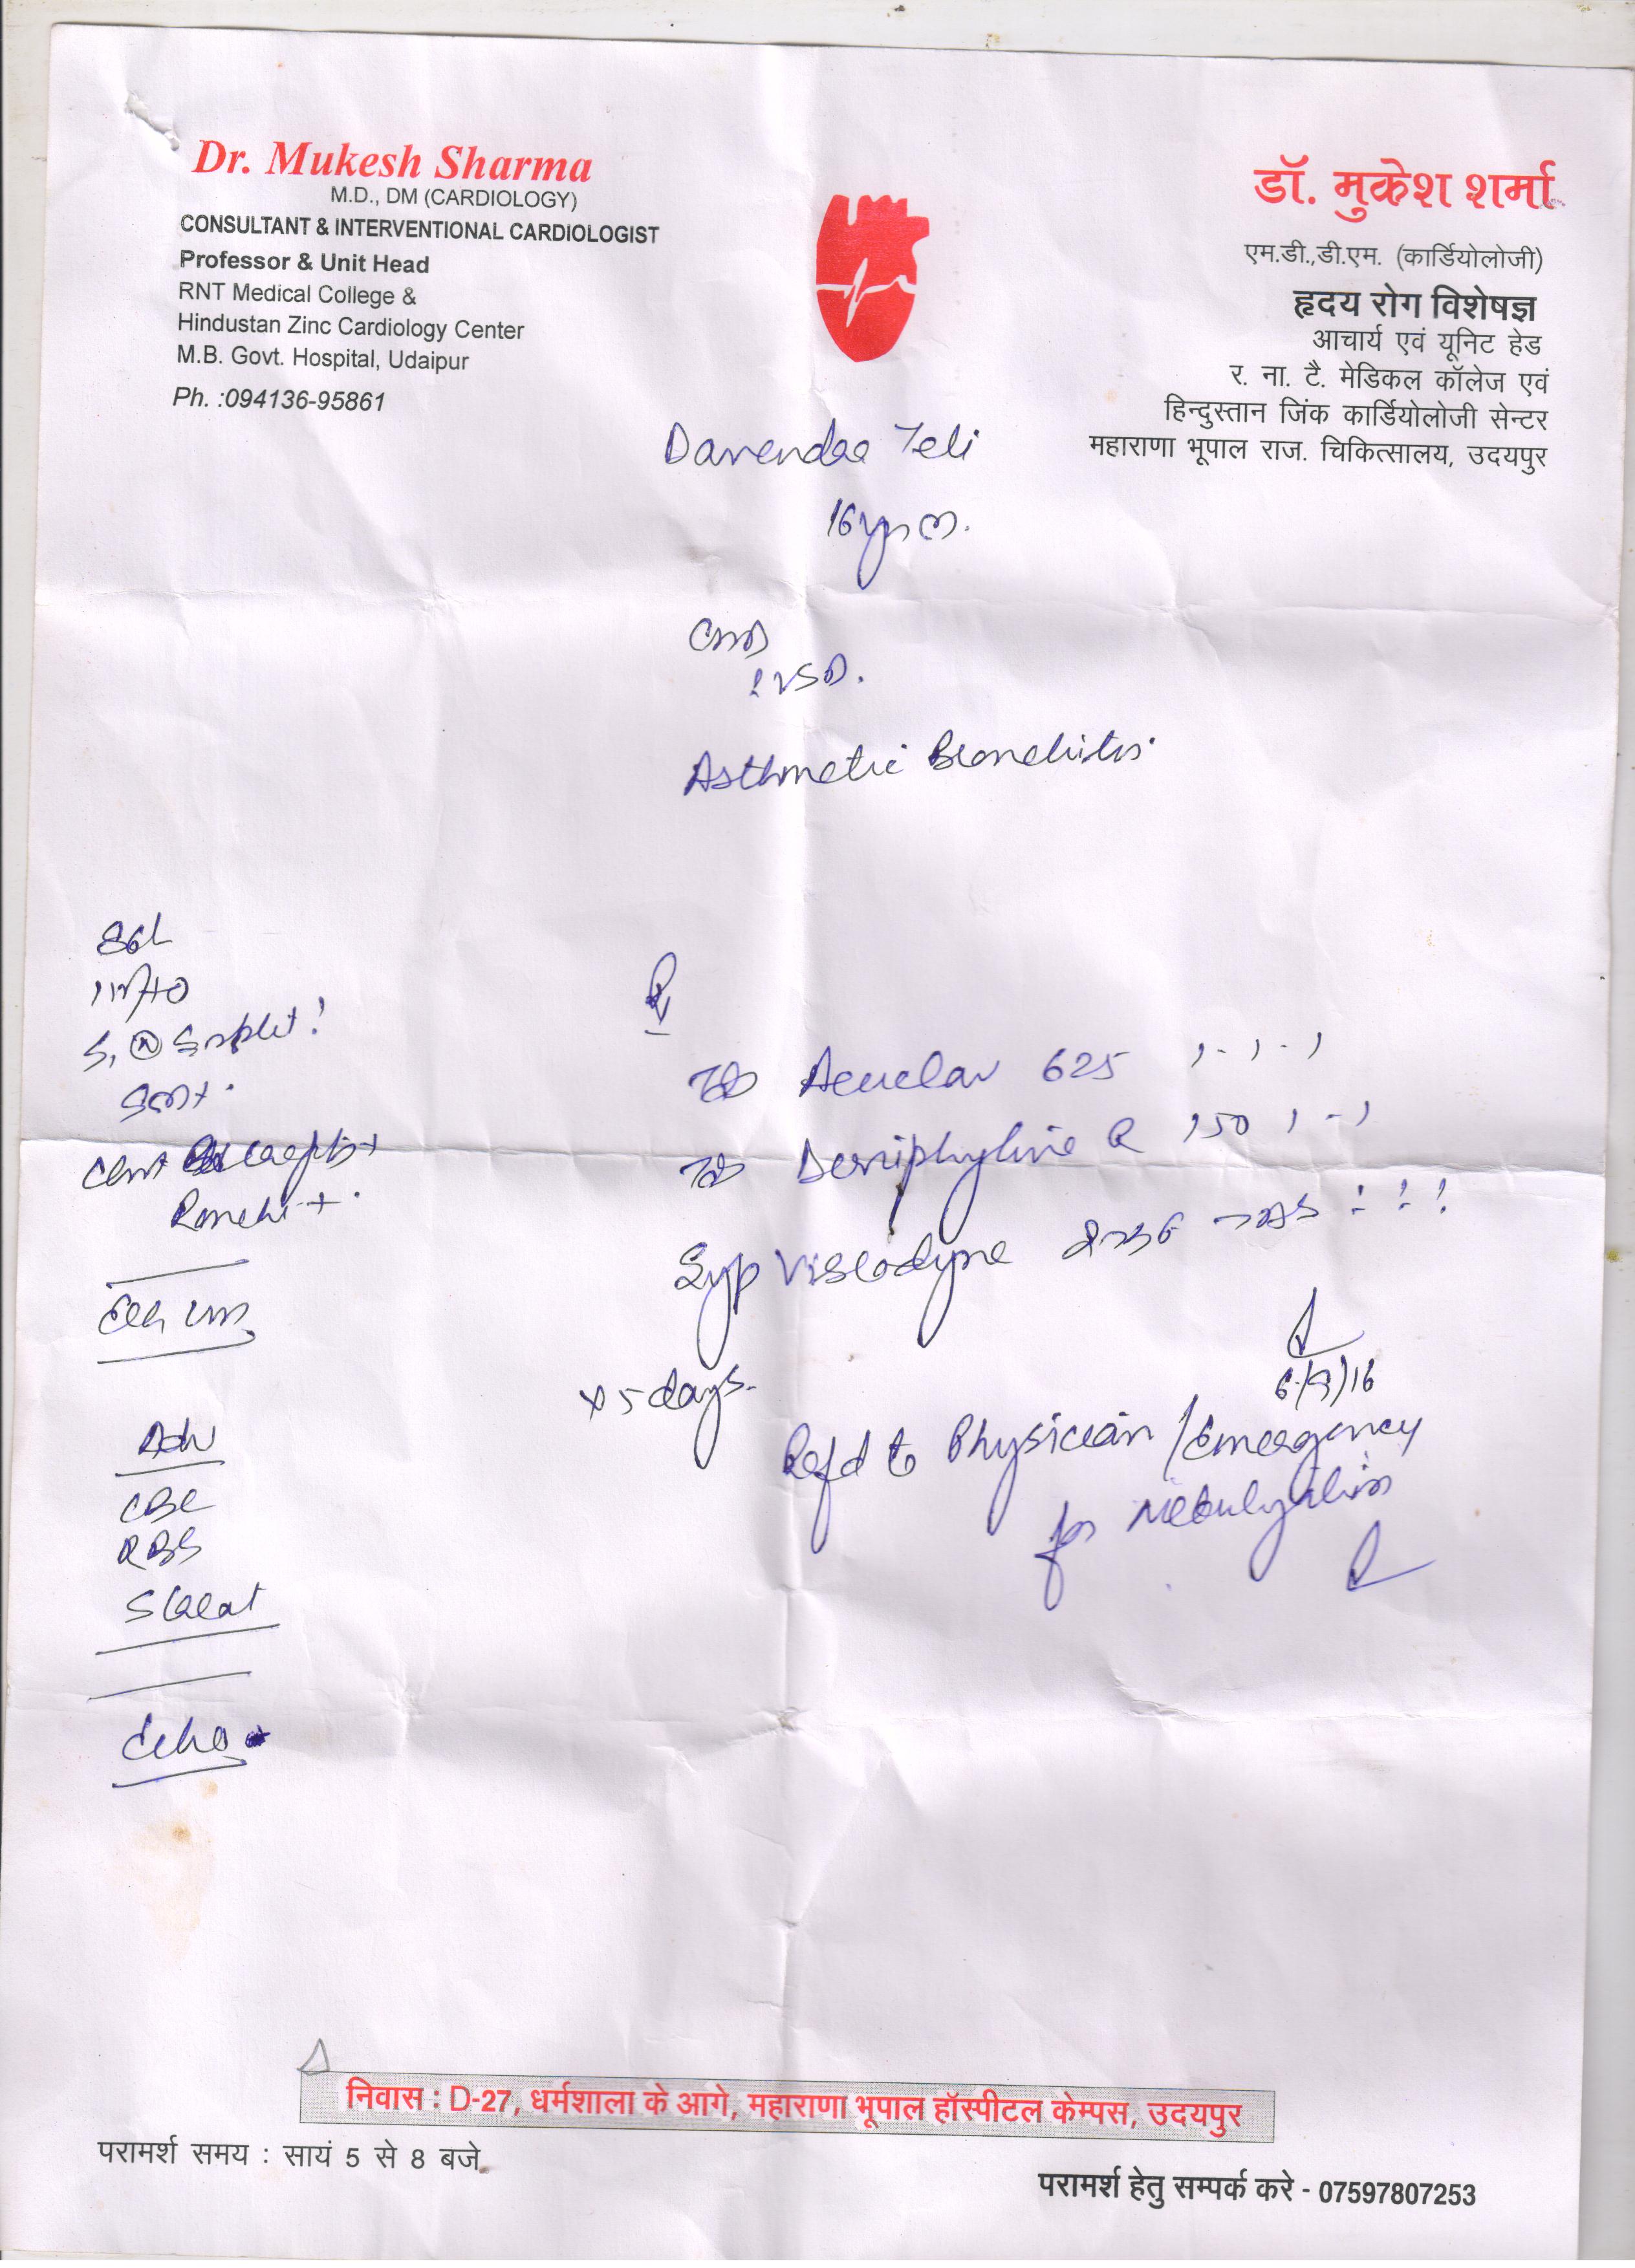 Dr. Mukesh Sharma
M.D., DM (CARDIOLOGY)
CONSULTANT & INTERVENTIONAL CARDIOLOGIST
Professor & Unit Head
RNT Medical College &
Hindustan Zinc Cardiology Center
M.B. Govt. Hospital, Udaipur
Ph. :094136-95861
डॉ. मुकेश शर्मा
एम.डी.,डी.एम. (कार्डियोलोजी)
हृदय रोग विशेषज्ञ
आचार्य एवं यूनिट हेड
र. ना. टै. मेडिकल कॉलेज एवं
हिन्दुस्तान जिंक कार्डियोलोजी सेन्टर
महाराणा भूपाल राज. चिकित्सालय, उदयपुर
Teli
16yrs
VSD.
Asthmetic Bronchitis.
Ronchi +.
Adv
CBC
RBS
S Creat
Echo
625 1-1-1
Deriphyline R 150 1-1
Syp Viscodyne
x 5 days.
6/9/16
Refd to Physician/Emergency
for Nebulyzation
निवास : D-27, धर्मशाला के आगे, महाराणा भूपाल हॉस्पीटल केम्पस, उदयपुर
परामर्श समय : सायं 5 से 8 बजे
परामर्श हेतु सम्पर्क करे - 07597807253